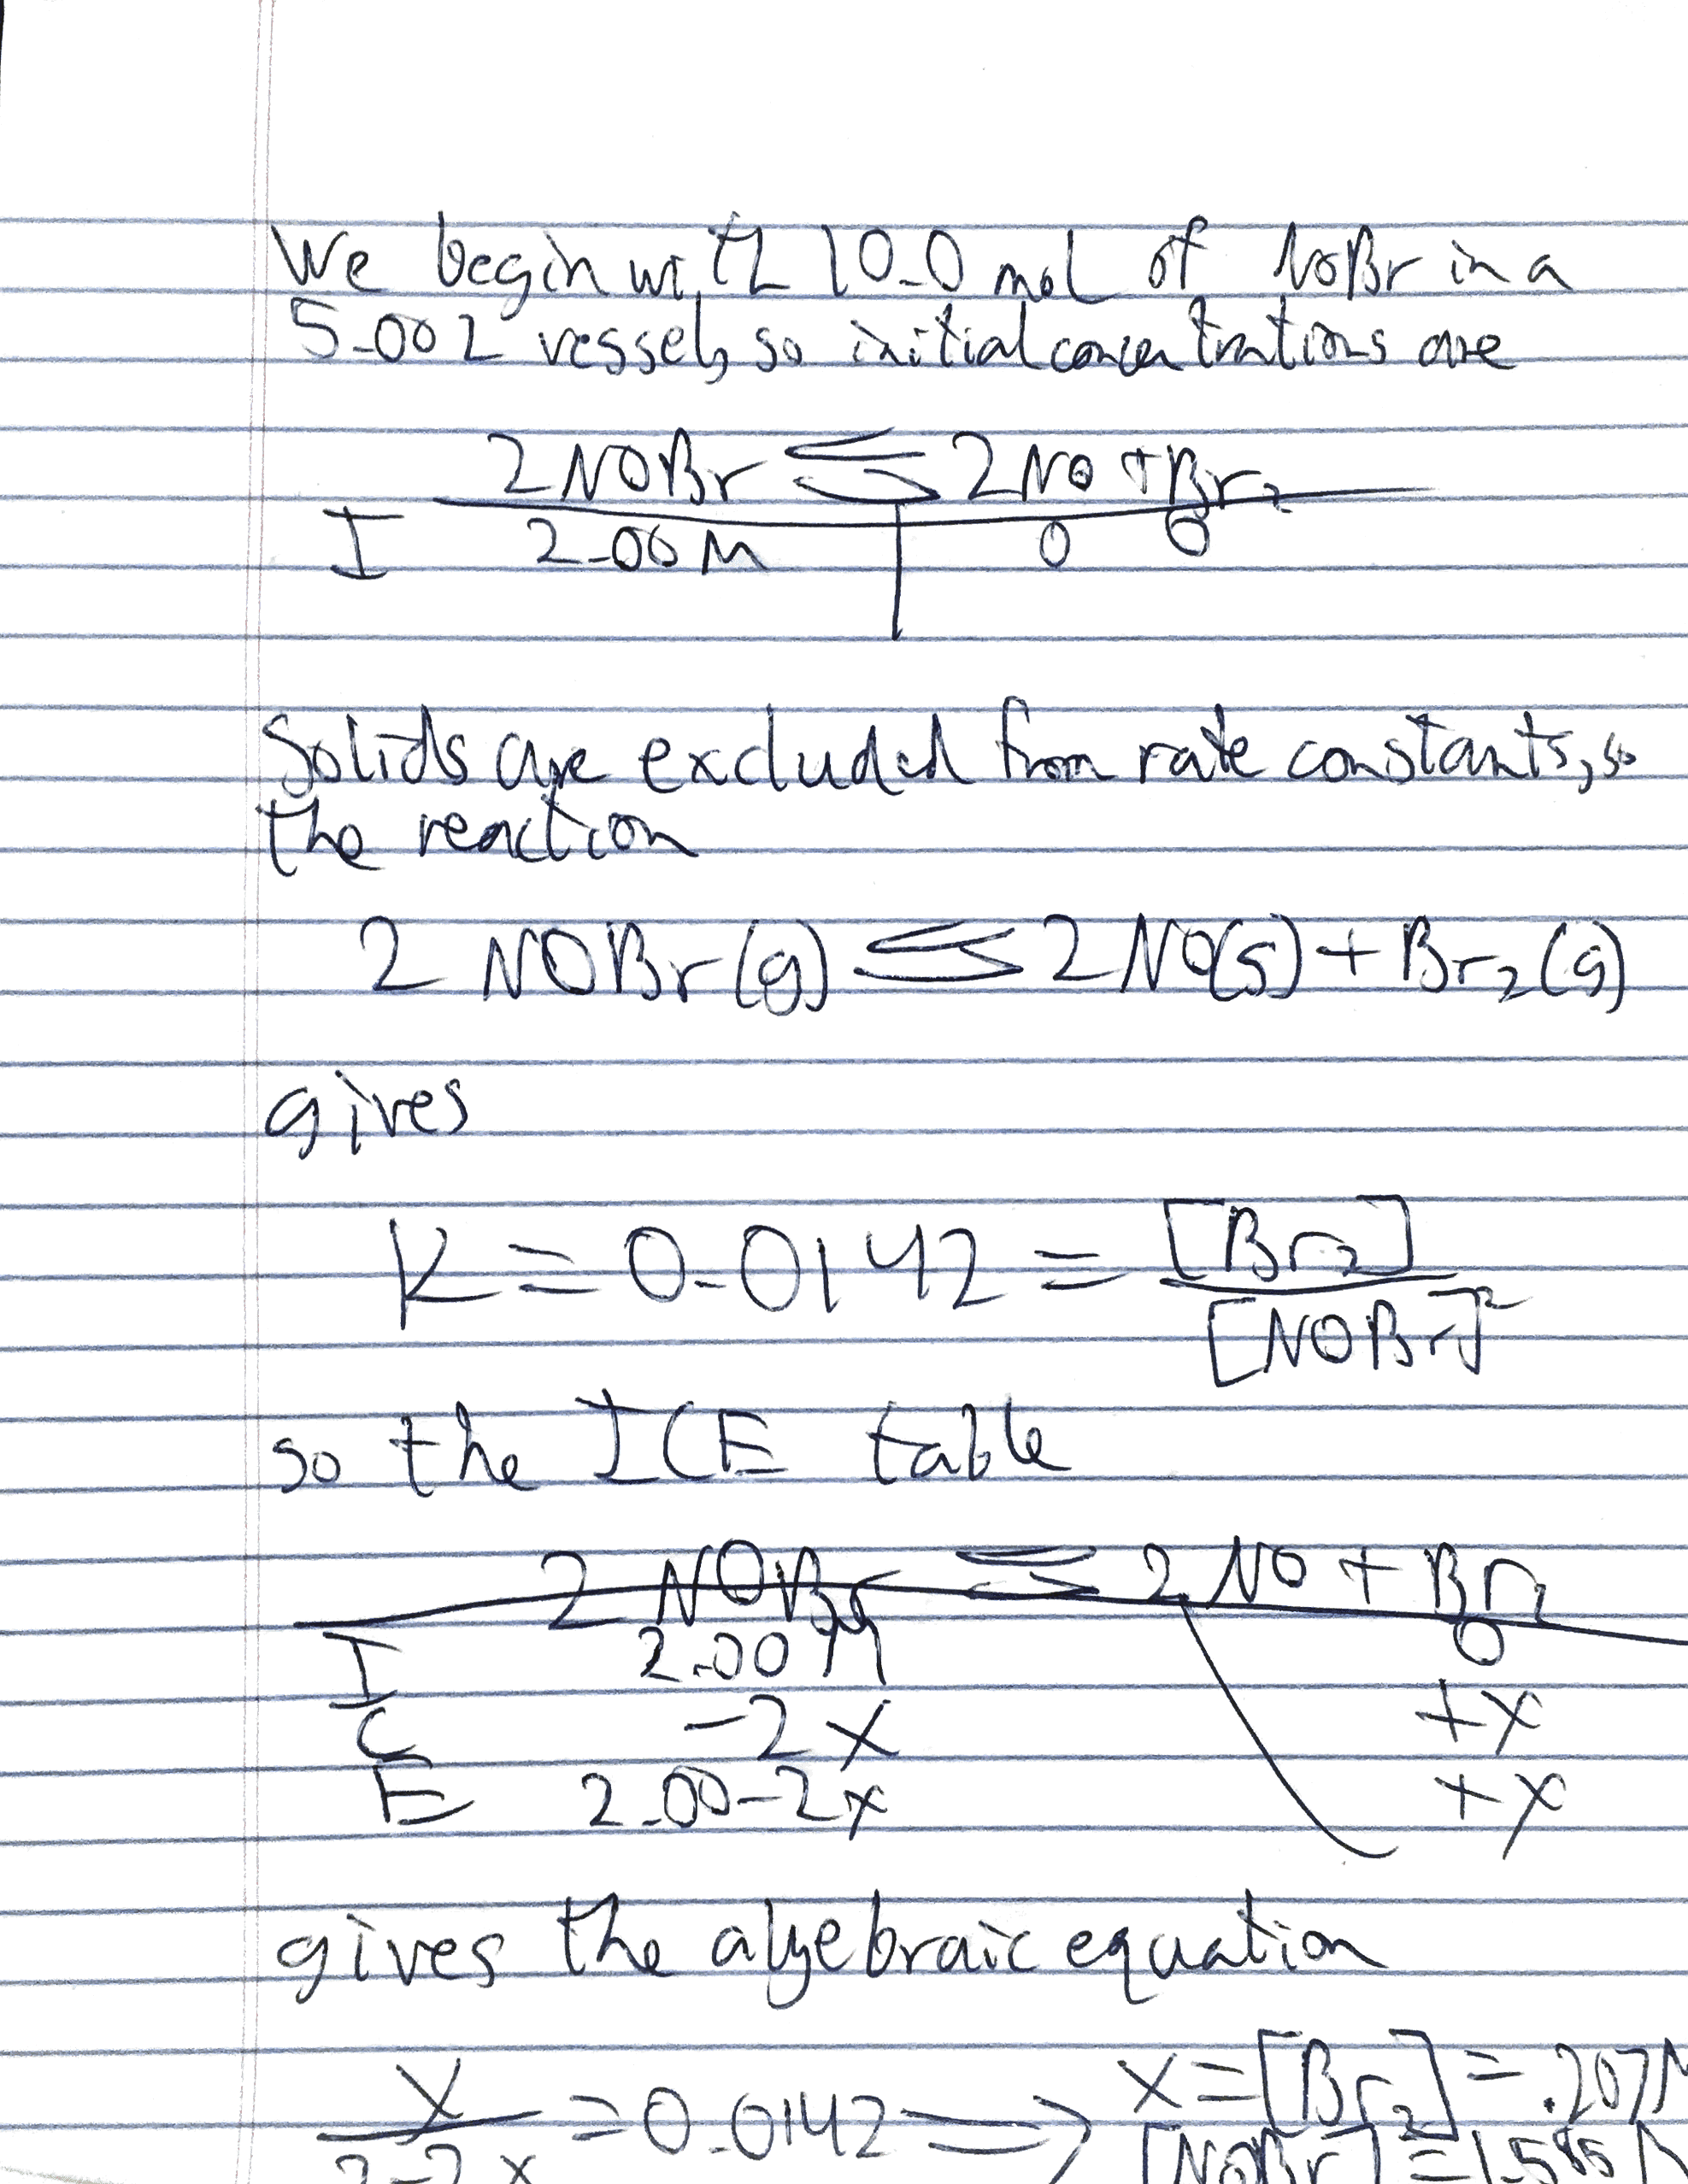 We begin with 10.0 mol of NOBr in a
5.00 L vessel, so initial concentrations are
2 NOBr ⇆ 2 NO + Br₂
I 2.00 M 0 0
Solids are excluded from rate constants, so
the reaction
2 NOBr (g) ⇆ 2 NO(s) + Br₂ (g)
gives
K = 0.0142 = [Br₂] / [NOBr]²
so the ICE table
2 NOBr ⇆ 2 NO + Br₂
I 2.00 M 0
C -2x +x
E 2.00-2x +x
gives the algebraic equation
x / 2-2x = 0.0142 ⇒ x = [Br₂] = .207 M
[NOBr] = 1.585 M